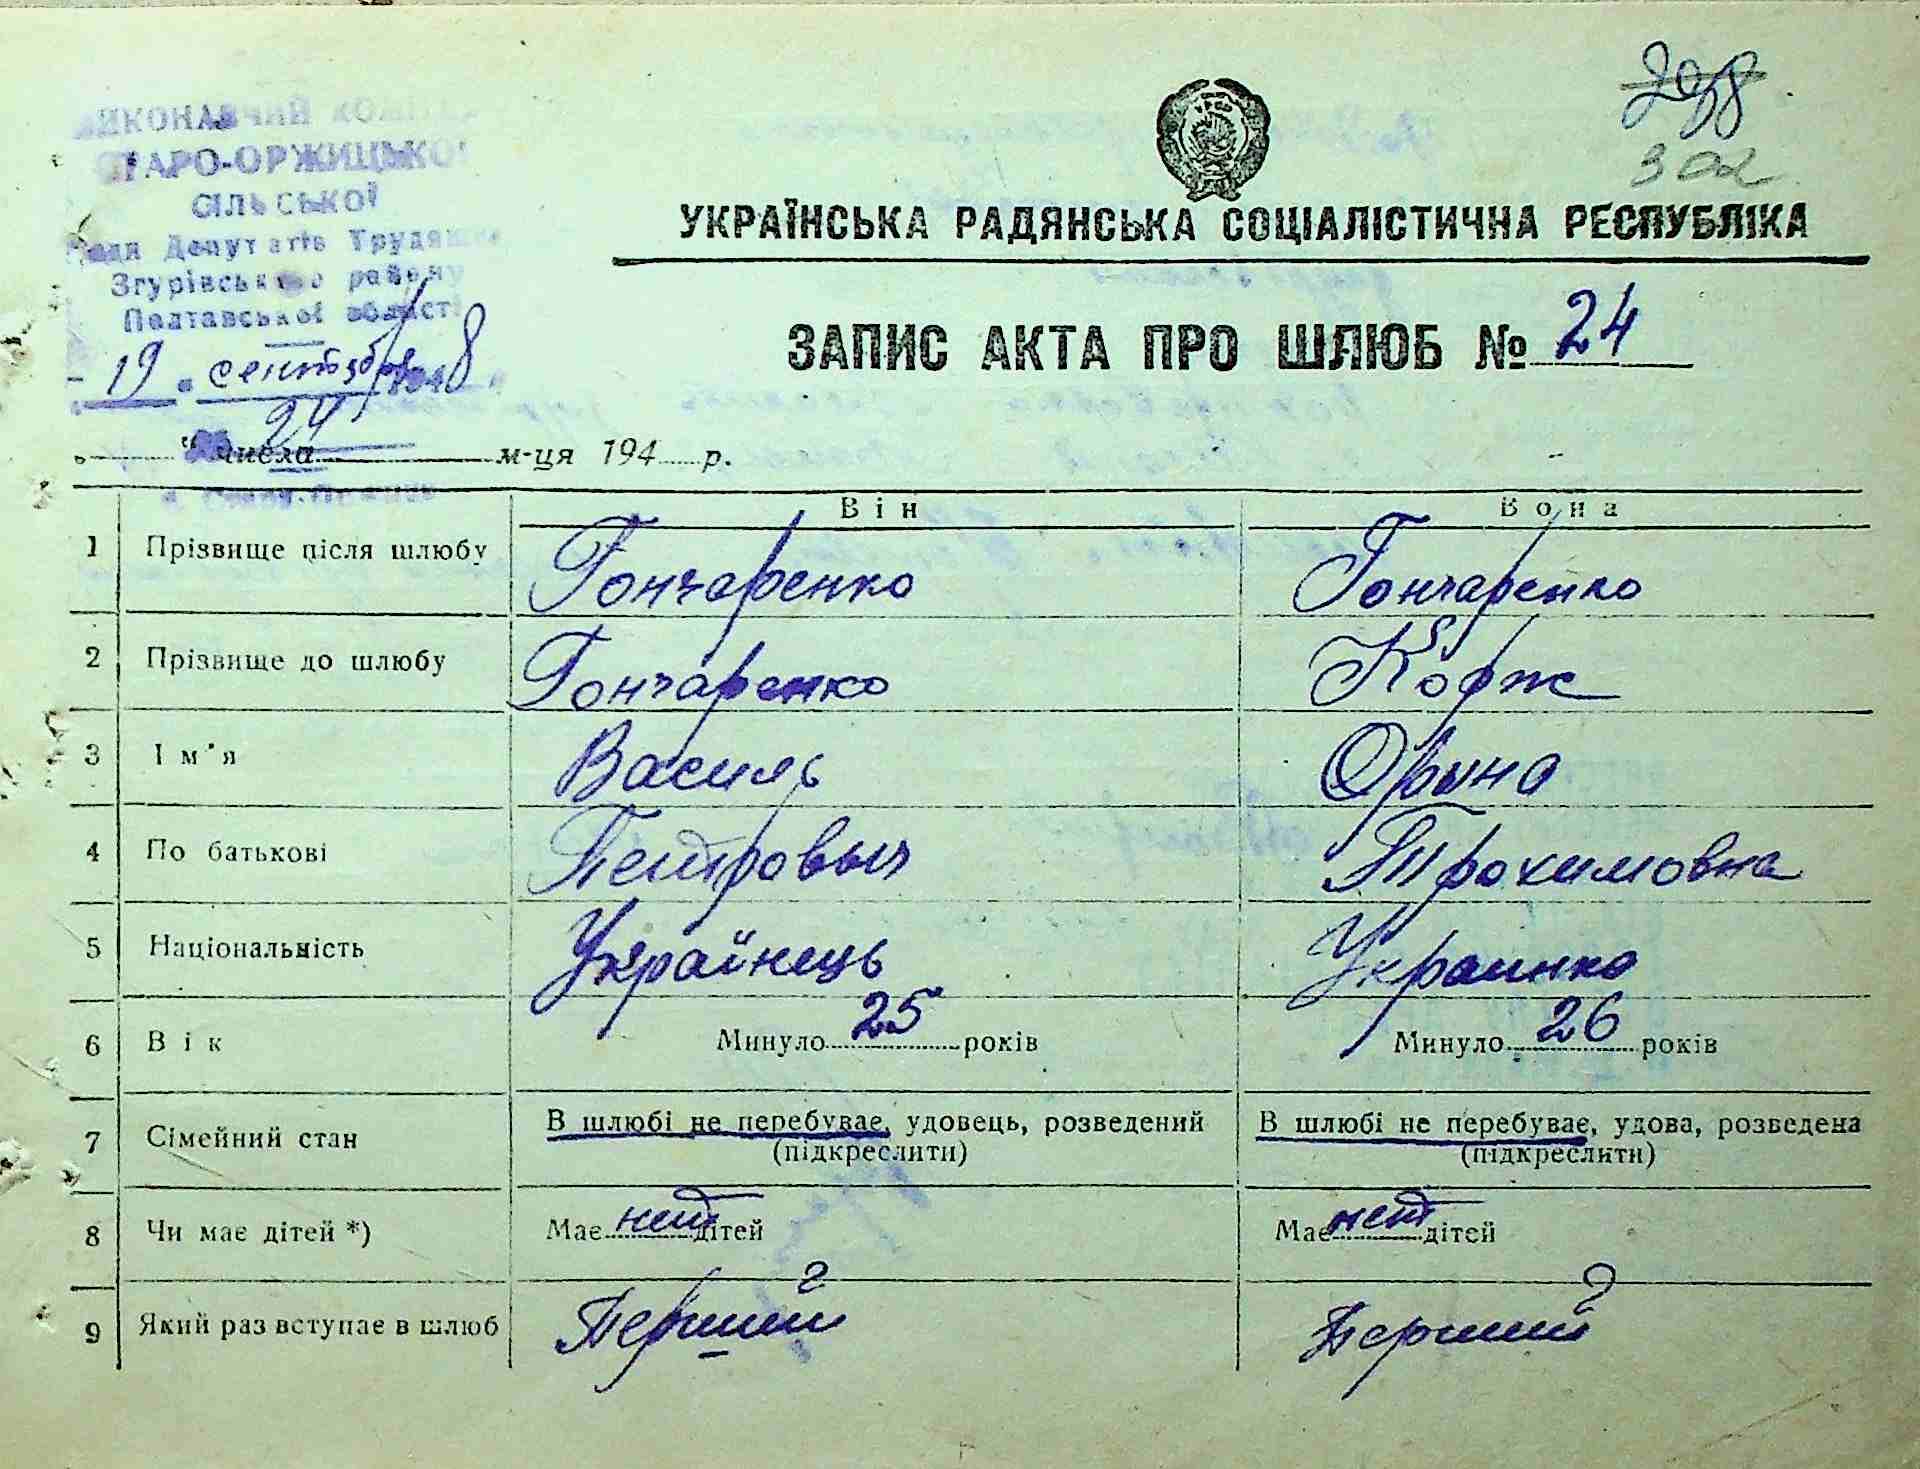 298
302
ВИКОНАВЧИЙ КОМІТЕТ
СТАРО-ОРЖИЦЬКОЇ
СІЛЬСЬКОЇ
Ради Депутатів Трудящих
Згурівського району
Полтавської області
19 сентября 1948
24
УРСР
УКРАЇНСЬКА РАДЯНСЬКА СОЦІАЛІСТИЧНА РЕСПУБЛІКА
ЗАПИС АКТА ПРО ШЛЮБ № 24
" числа м-ця 194 р.
Він Вона
1 Прізвище після шлюбу Гончаренко Гончаренко
2 Прізвище до шлюбу Гончаренко Корж
3 Ім'я Василь Орина
4 По батькові Петровыч Трохимовна
5 Національність Українець Украинка
6 Вік Минуло 25 років Минуло 26 років
7 Сімейний стан В шлюбі не перебуває, удовець, розведений В шлюбі не перебуває, удова, розведена
(підкреслити) (підкреслити)
8 Чи має дітей *) Має нет дітей Має нет дітей
9 Який раз вступає в шлюб Перший Перший